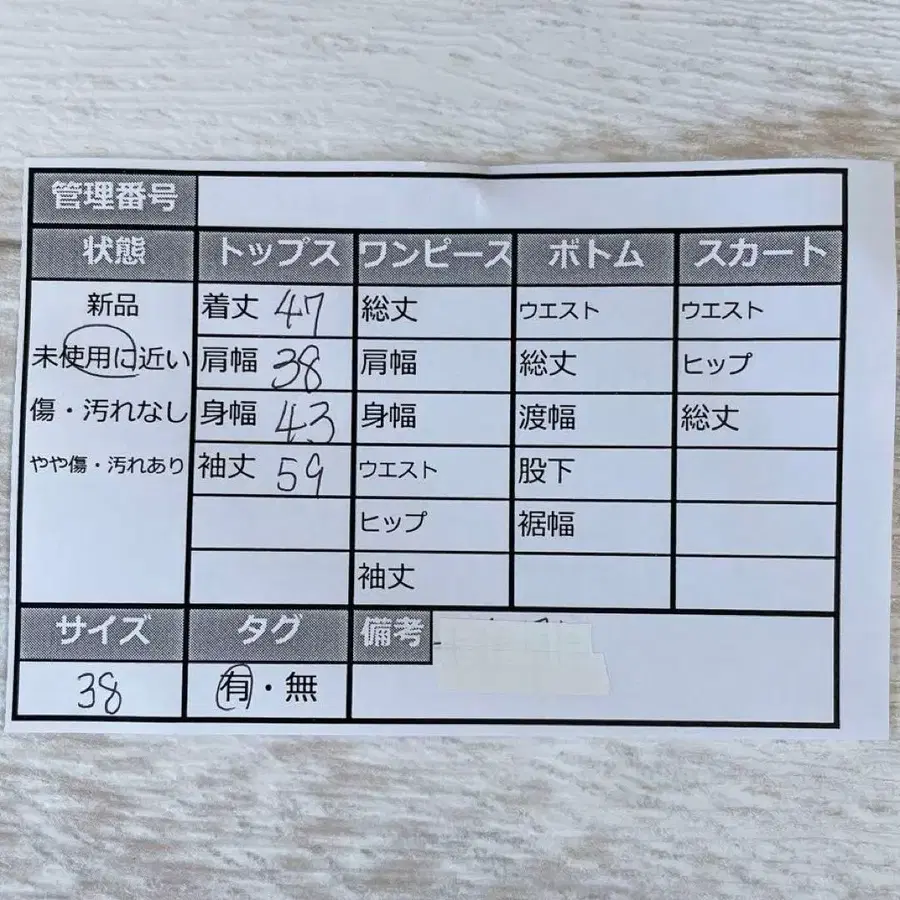 管理番号
状態 トップス ワンピース ボトム スカート
新品 着丈 47 総丈 ウエスト ウエスト
未使用に近い 肩幅 38 肩幅 総丈 ヒップ
傷・汚れなし 身幅 43 身幅 渡幅 総丈
やや傷・汚れあり 袖丈 59 ウエスト 股下
ヒップ 裾幅
袖丈
サイズ タグ 備考
38 有・無